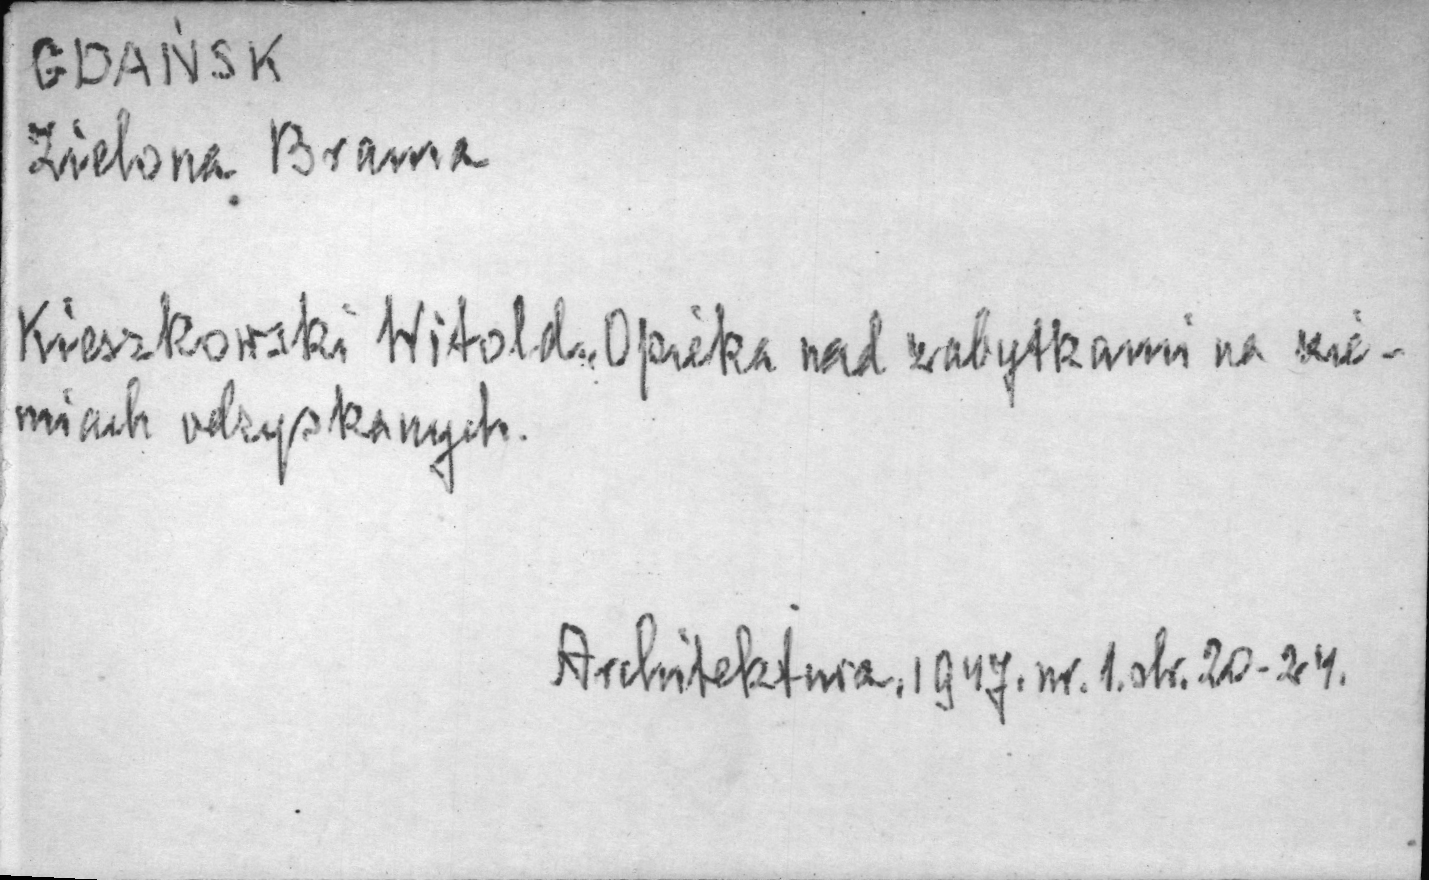 GDAŃSK
Zielona Brama
Kieszkowski Witold. Opieka nad zabytkami na zie-
miach odzyskanych.
Architektura. 1947. nr. 1. str. 20-24.